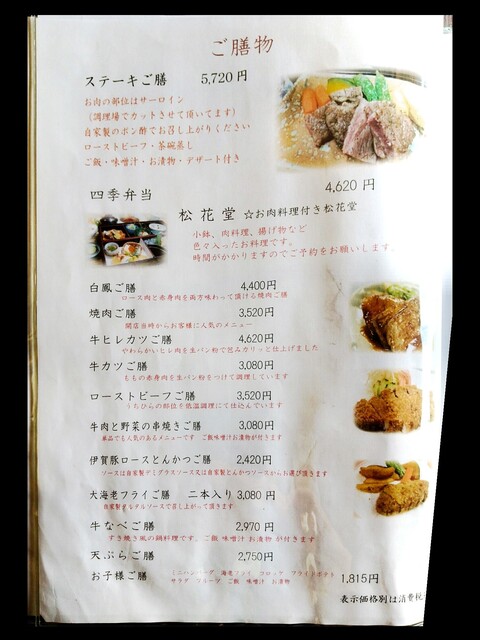 ご膳物
ステーキご膳 5,720円
お肉の部位はサーロイン
(調理場でカットさせて頂いてます)
自家製のポン酢でお召し上がりください
ローストビーフ・茶碗蒸し
ご飯・味噌汁・お漬物・デザート付き
四季弁当
4,620円
松花堂 ☆お肉料理付き松花堂
小鉢、肉料理、揚げ物など
色々入ったお料理です。
時間がかかりますのでご予約をお願いします。
白鳳ご膳 4,400円
ロース肉と赤身肉を両方味わって頂ける焼肉ご膳
焼肉ご膳 3,520円
開店当時からお客様に人気のメニュー
牛ヒレカツご膳 4,620円
やわらかいヒレ肉を生パン粉で包みカリッと仕上げました
牛カツご膳 3,080円
ももの赤身肉を生パン粉をつけて調理しています
ローストビーフご膳 3,520円
うちひらの部位を低温調理にて仕込んでいます
牛肉と野菜の串焼きご膳 3,080円
単品でも人気のあるメニューです ご飯味噌汁お漬物が付きます
伊賀豚ロースとんかつご膳 2,420円
ソースは自家製デミグラスソース又は自家製とんかつソースからお選び頂きます
大海老フライご膳 二本入り 3,080円
自家製タルタルソースで召し上がって頂きます
牛なべご膳 2,970円
すき焼き風の鍋料理です。ご飯 味噌汁 お漬物 が付きます
天ぷらご膳 2,750円
お子様ご膳 ミニハンバーグ 海老フライ コロッケ フライドポテト
サラダ フルーツ ご飯 味噌汁 お漬物 1,815円
表示価格別は消費税